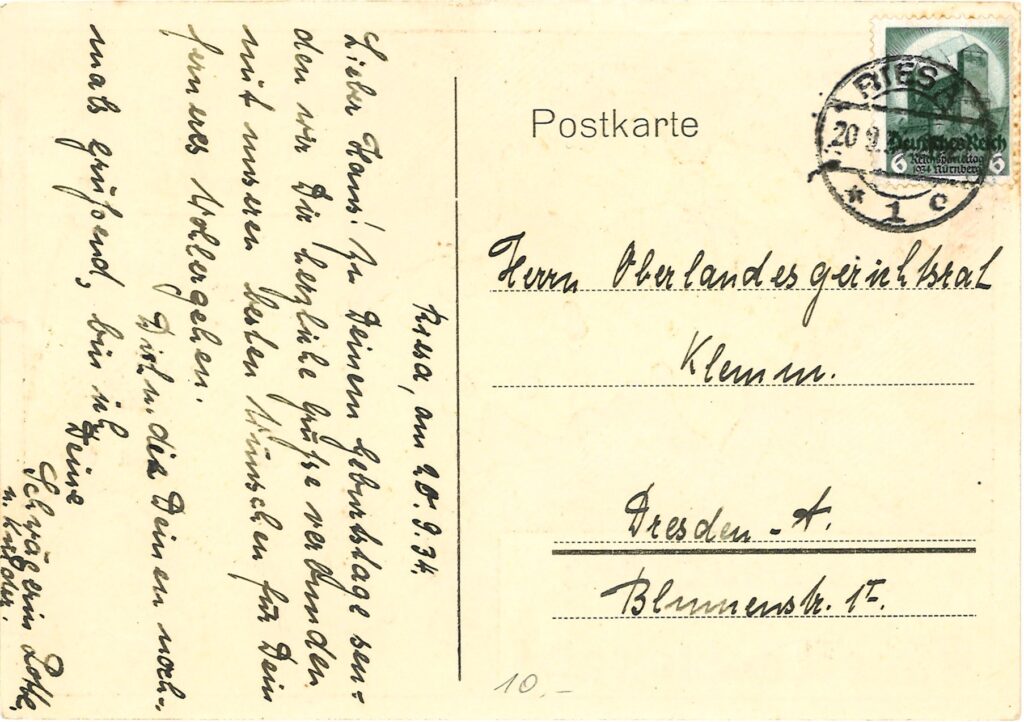 Riesa, am 20.9.34.
Lieber Hans! Zu Deinem Geburtstage sen=
den wir Dir herzliche Grüße verbunden
mit unseren besten Wünschen für Dein
ferneres Wohlergehen.
Dich u. die Deinen noch=
mals grüßend, bin ich
Deine
Schwägerin Lotte,
u. Kinder.
Postkarte
RIESA
20 9.
* 1 c
Deutsches Reich
6 Reichsparteitag 6
1934 Nürnberg
Herrn Oberlandesgerichtsrat
Klemm.
Dresden-A.
Blumenstr. 1
10.-